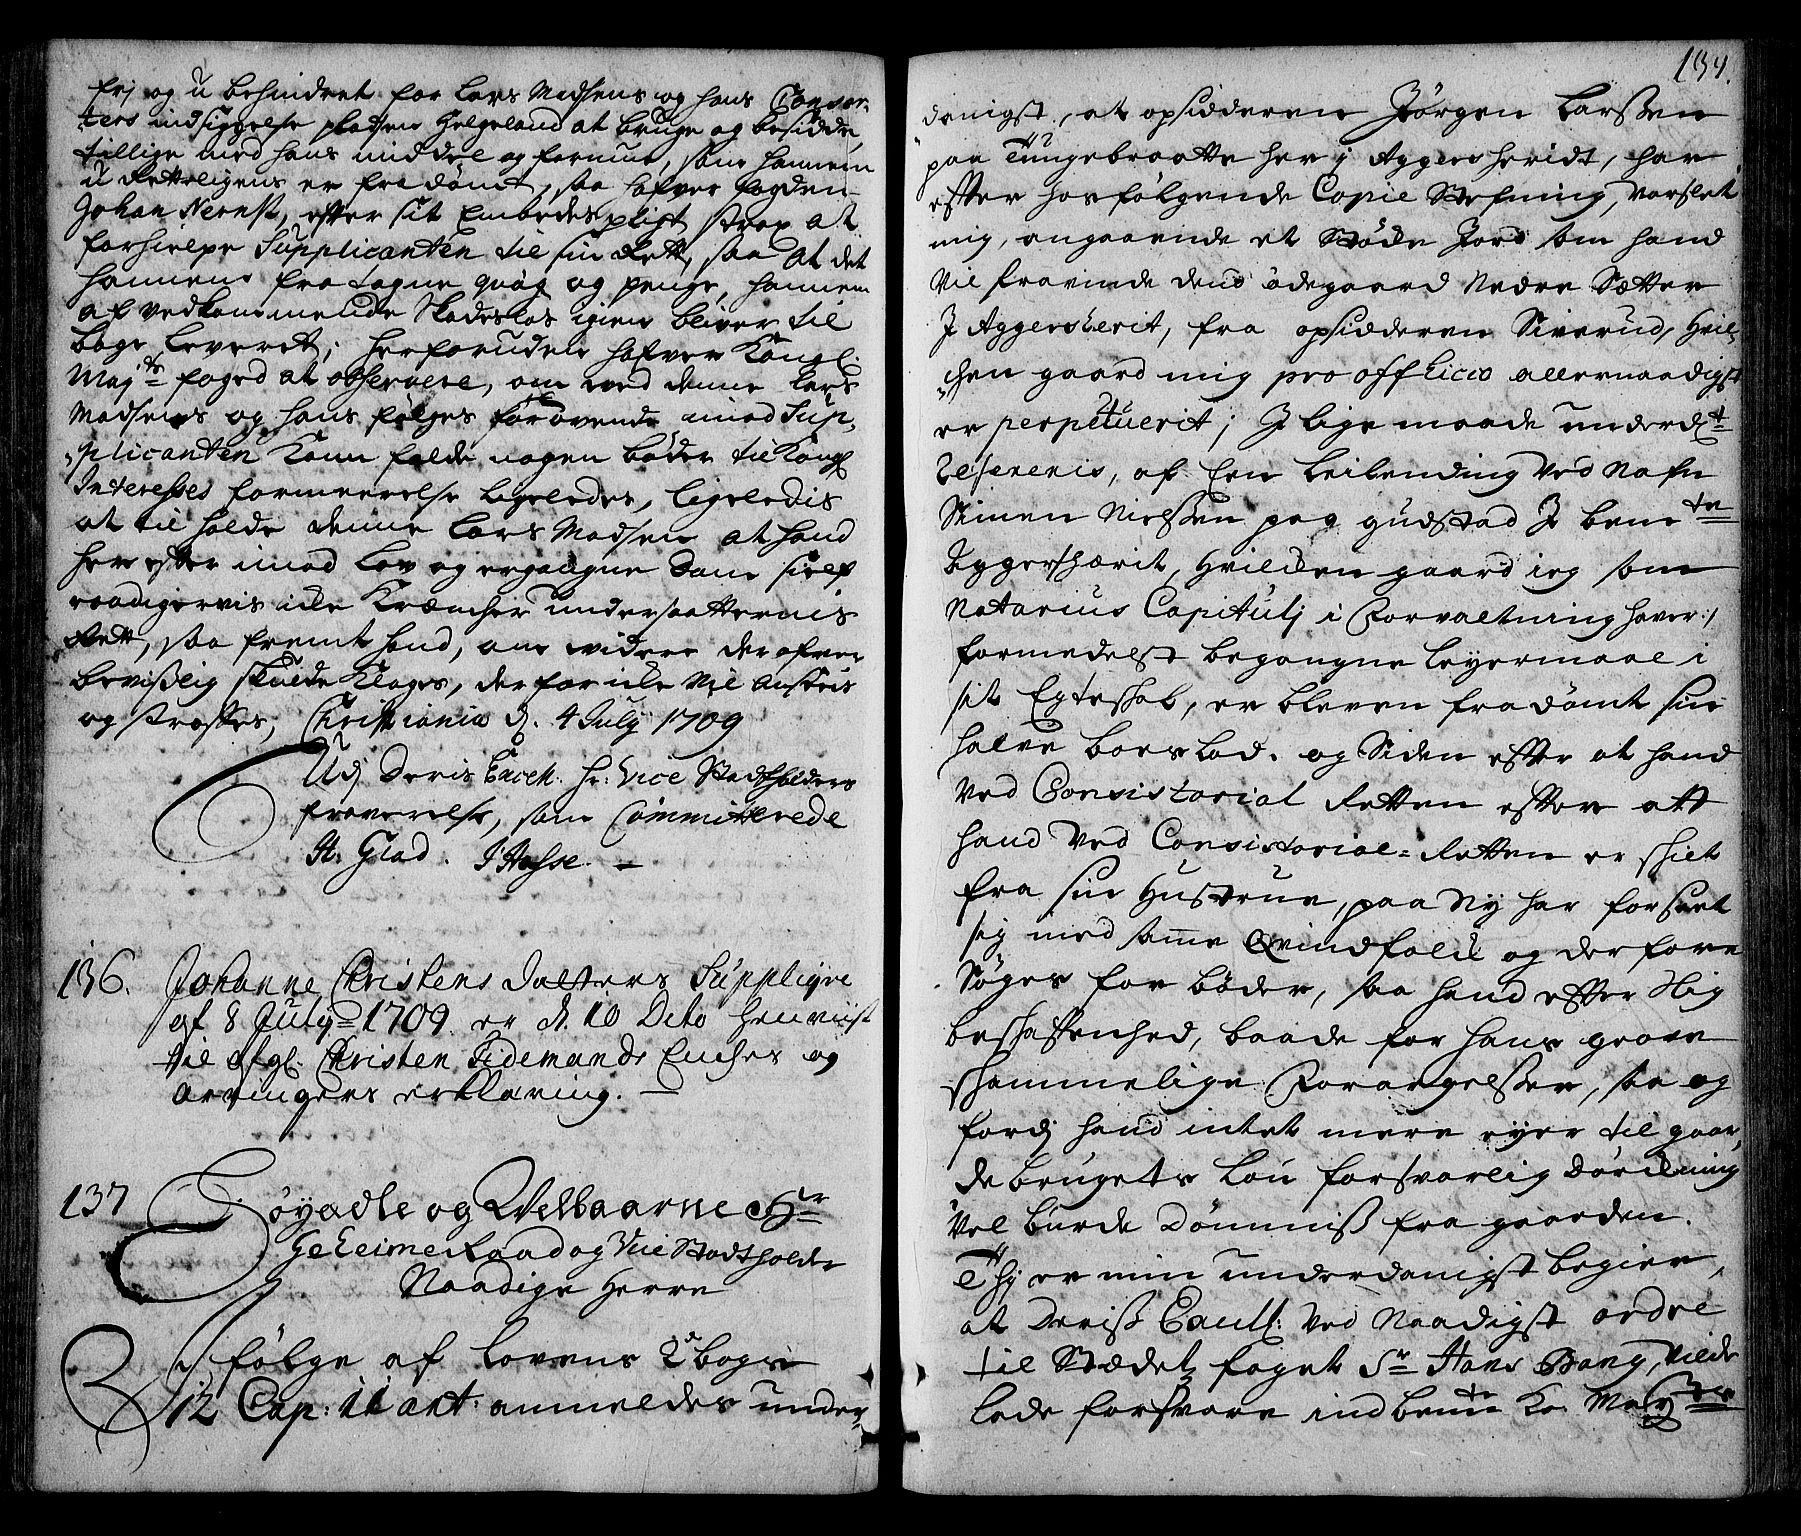 frj og u behindret for Lars Madsens og hans Consor-
ters indsiggelse pladsen Helgeland at bruge og besidde,
tillige med hans middel og formue, som hannem
u Retteligens er fradømt, saa hafver fogden
Johan Nernst, efter sit Embeds pligt strax at
forhielpe Supplicanten til sin Rett, saa at det
hannem fra tagne qvæg og penge, hannem
af vedkommende Skadesløs igien bliver til
bage leveret; herforuden hafver Kongl.
Maj:ts foged at observere, om med denne Lars
Madsens og hans følges forøvende imod Sup-
plicanten Kann falde nogen bøder til Kongl
Interesses formeerelse ligeledes, ligeledis
at til holde denne Lars Madsen at hand
her efter imod Lov og ergangne Dom sielf
raadigervis icke Kræncher undersaatternis
Rett, saa fremt hand, om widere der ofver
bevißlig skulde Klages, derfor icke vil ansees
og straffes, Christiania d. 4 July 1709
Udj Deris Excell. Hr: Vice Stadtholders
fraverelse, som Committerede
H. Glad. I Hasse. –
136. Johanne Christens Datters Suppliqve
af 8 July 1709 er d. 10 Dito henviist
til afgl. Christen Tidemands Enches og
arvingers erklæring. —
137 Høyædle og Velbaarne Hr
Geheime Raad og Vice Stadtholder
Naadige Herre
I følge af Lovens 2 bogs
12 Cap: 11 art: anmeldes under-
134.
danigst, at opsidderen Jørgen Larssen
paa Tungebraatte her j Aggersheridt, har
efter hosfølgende Copie Stefning, varslet
mig, angaaende et Støche Jord som hand
vil fravinde dend ødegaard Nedre Sætter
J Aggersherit, fra opsidderen Siverud, hvil-
chen gaard mig pro officio allernaadigst
er perpetuerit; J lige maade underd:t
refereris, af Een leilending ved Nafn
Simen Nielssen paa Gudstad J bem:te
Aggershærit, hvilcken gaard ieg som
Notarius Capitulj i Forvaltning haver:/
formedelst begangne leyermaal i
sit Egteskab, er bleven fradømt sin
halve boeslod. og Siden efter at hand
ved Consistorial Retten efter att
hand ved Consistorial-Retten er skilt
fra sin Hustrue, paa Ny har forseet
sig med samme Qvindfolck og derfore
Søges for bøder, saa hand efter slig
beskaffenhed, baade for hans grove
skammelige Forargelsser, saa og
fordj hand intet mere eyer til gaar-
de brugets Lou forsvarlig dørckning
vel burde dømmis fra gaarden.
Thj er min underdanigst begier,
at Deriß Excell: ved Naadigst ordre
til Stædets foget Sr Hans Bang, vilde
lade forsvare ind bem:te Ko. May:ts